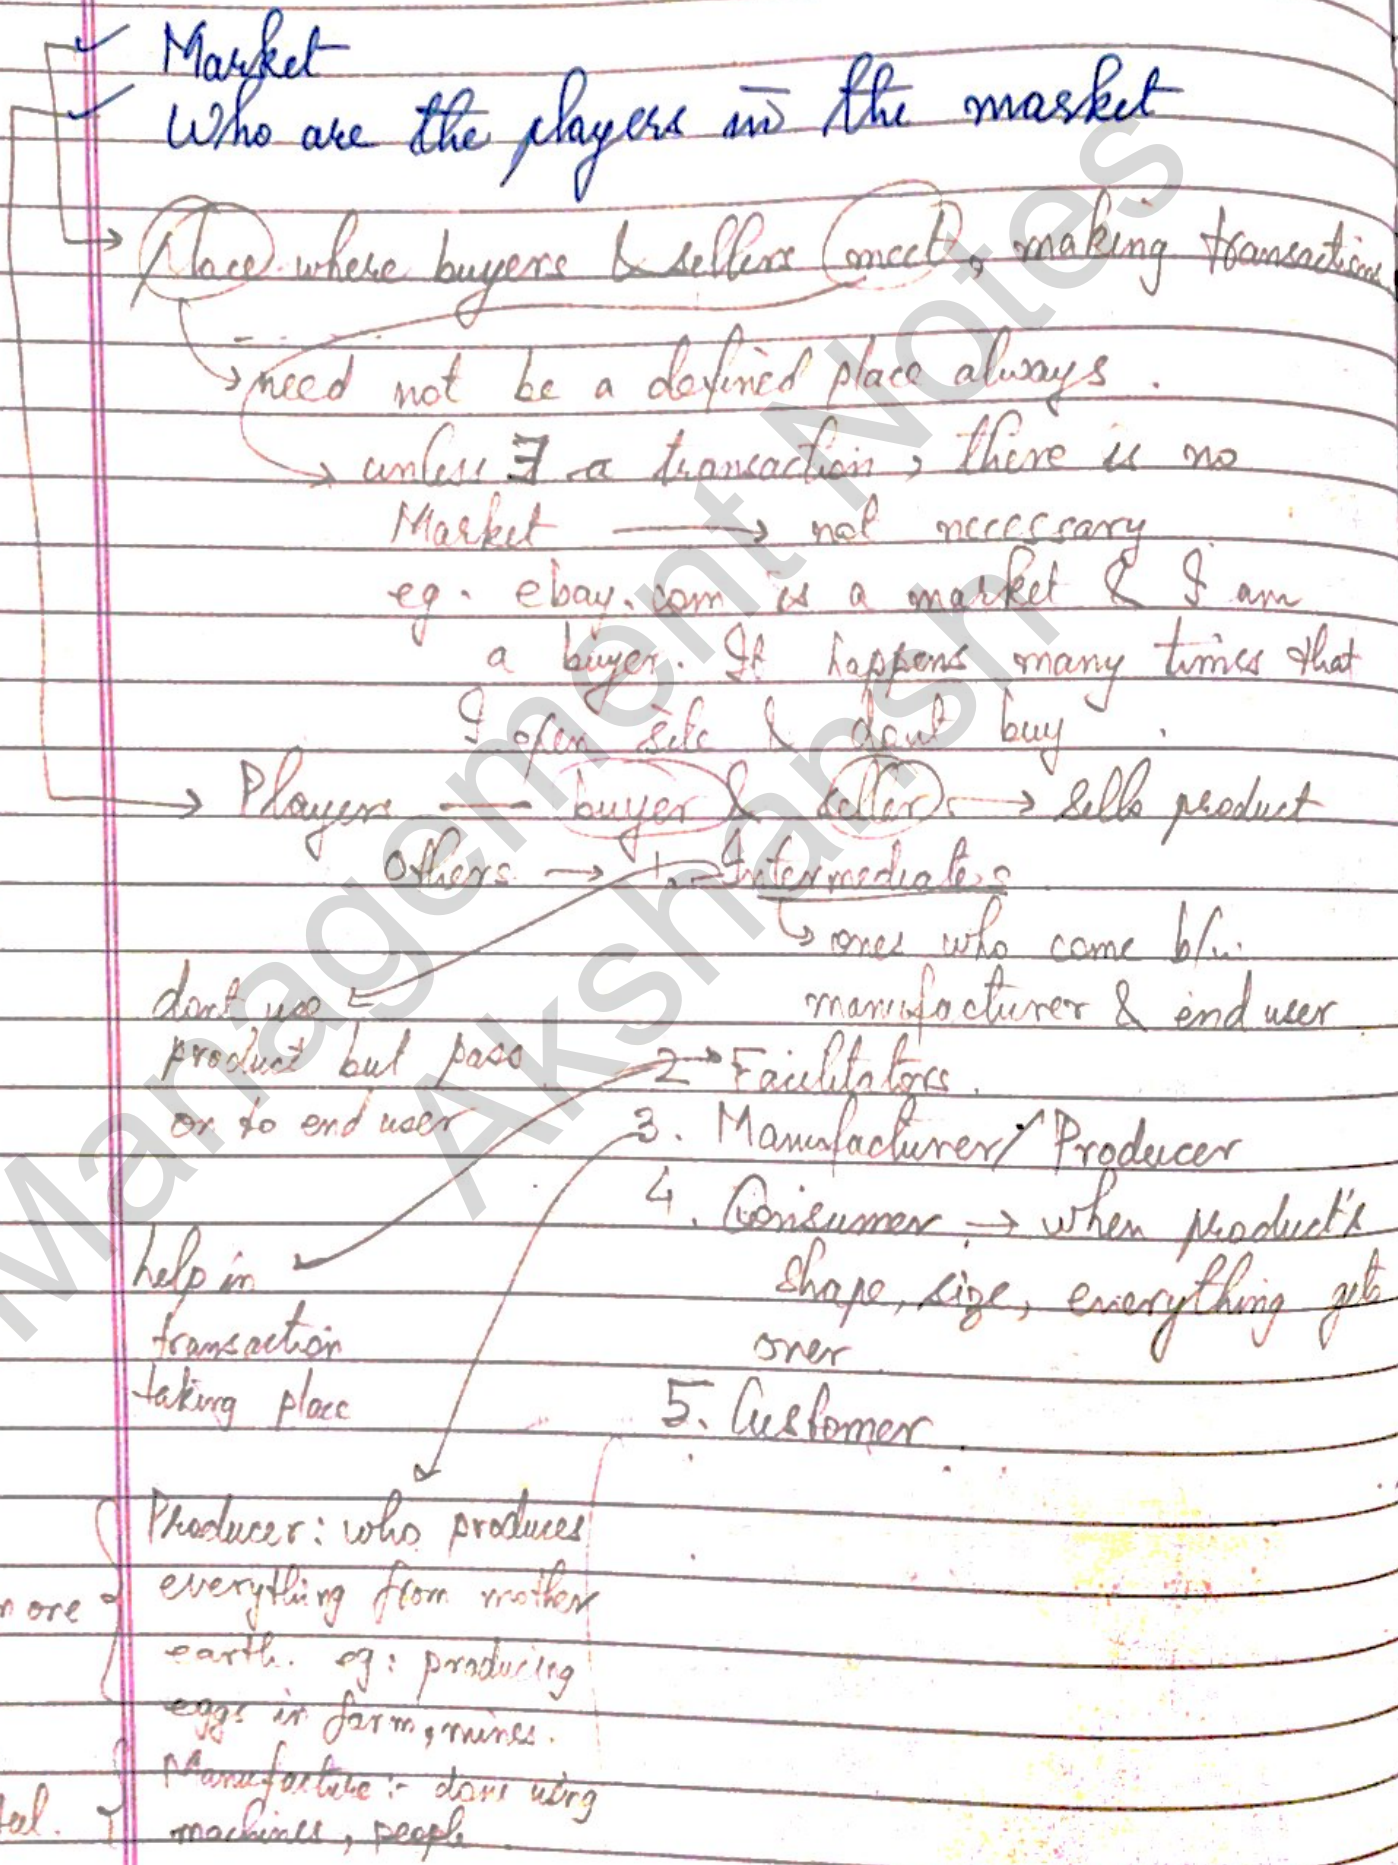 Market
Who are the players in the market
Place where buyers & sellers meet, making transactions
need not be a defined place always.
unless ∃ a transaction, there is no
Market → not necessary
eg. ebay.com is a market & I am
a buyer. It happens many times that
I open site & dont buy
Players — buyer & seller. → sells product
Others → 1. Intermediaters
ones who come b/w
manufacturer & end user
dont use
product but pass
on to end user
2 Facilitators.
3. Manufacturer/Producer
4. Consumer → when product's
shape, size, everything gets
over
help in
transaction
taking place
5. Customer
Producer: who produces
everything from mother
earth. eg: producing
eggs in farm, mines.
ore
Manufacture:- done using
machines, people
Management Notes
Akshansh